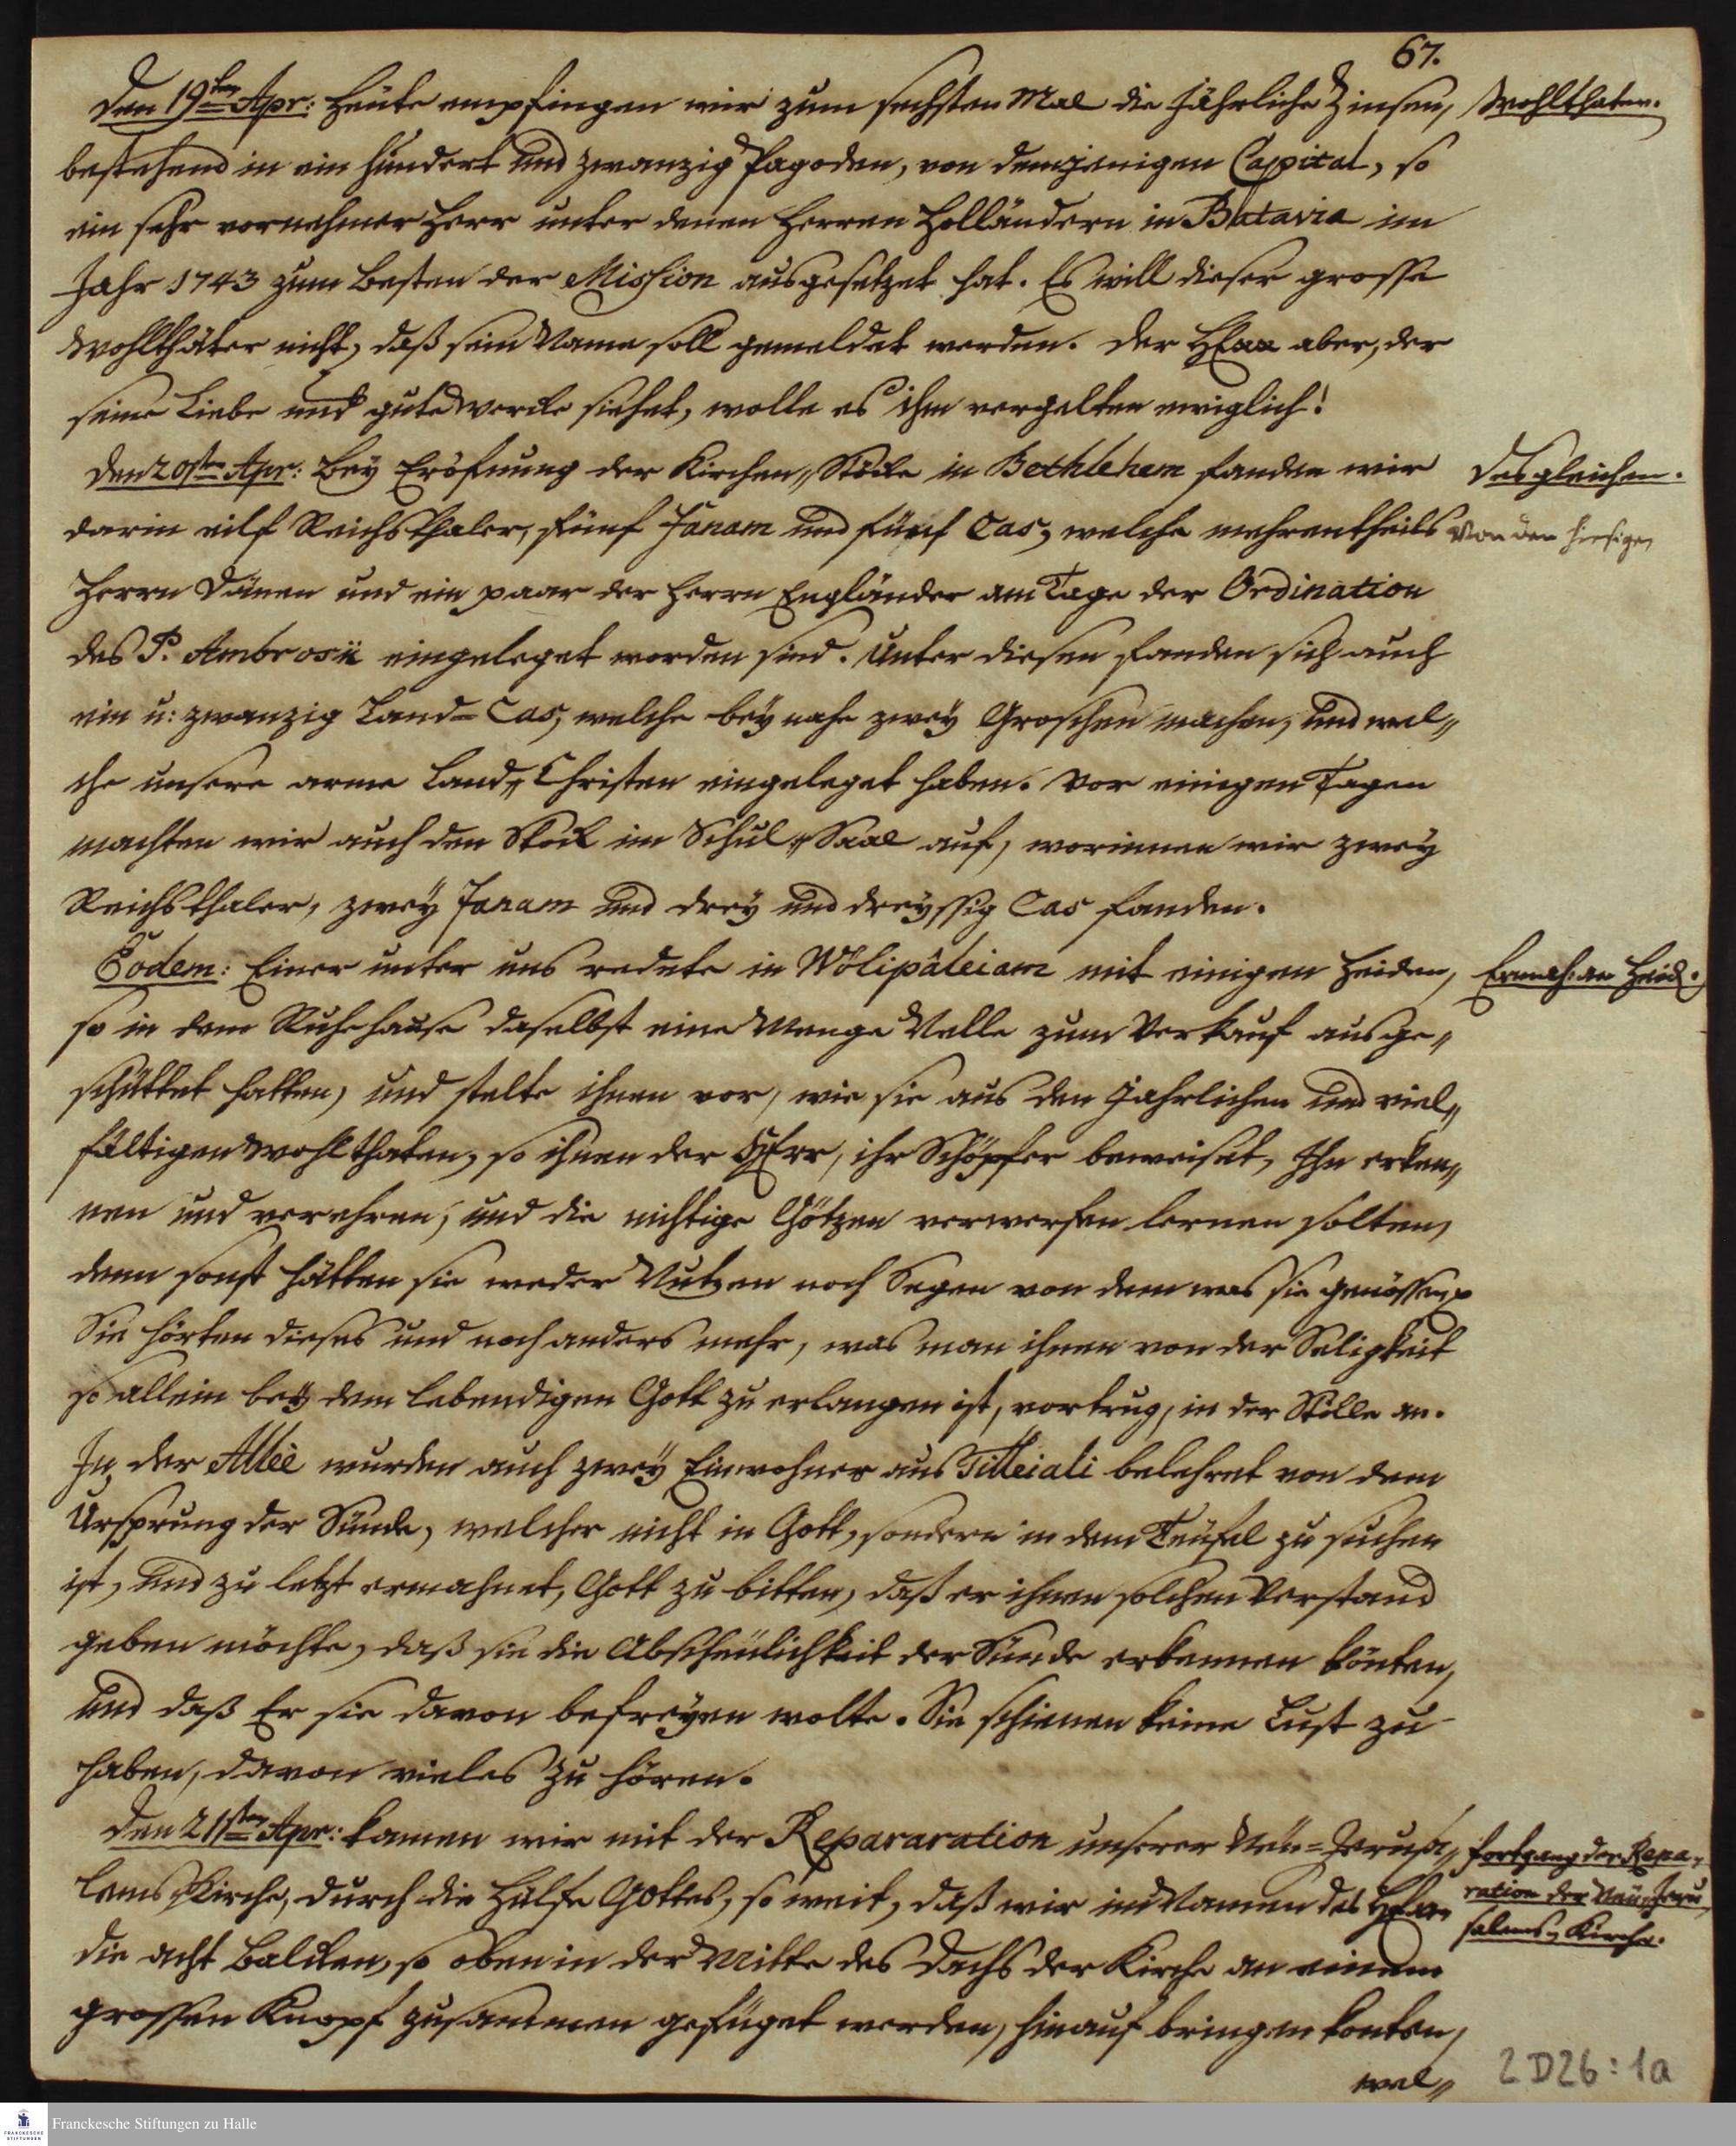 67.
Den 19ten Apr: Heute empfingen wir zum sechsten Mal die jährliche Zinsen,
Wohlthaten.
bestehend in ein hundert und zwanzig Pagoden, von demjenigen Capital, so
ein sehr vornehmer Herr unter denen Herren Holländern in Batavia im
Jahr 1743 zum Besten der Mission ausgesetzet hat. Es will dieser grosse
Wohlthäter nicht, daß sein Name soll gemeldet werden. Der HErr aber, der
seine Liebe und gute Wercke siehet, wolle es ihm vergelten ewiglich!
Den 20sten Apr: Bey Eröfnung der Kirchen-Stöcke in Bethlehem fanden wir
Desgleichen.
darin eilf Reichsthaler, fünf Fanam und fünf Cas, welche mehrentheils
von den hiesigen
Herrn Dänen und ein paar der Herrn Engländer am Tage der Ordination
des P. Ambrosii eingeleget worden sind. Unter diesen fanden sich auch
ein u: zwanzig Land-Cas, welche bey nahe zwey Groschen machen, und wel-
che unsere arme Land-Christen eingeleget haben. Vor einigen Tagen
machten wir auch den Stock im Schul-Saal auf, worinnen wir zwey
Reichsthaler, zwey Fanam und drey und dreyssig Cas fanden.
Eodem: Einer unter uns redete in Wölipâleiam mit einigen Heiden,
Ermah: an Heid.
so in dem Ruhehause daselbst eine Menge Nelle zum Verkauf ausge-
schüttet hatten, und stelte ihnen vor, wie sie aus den jährlichen und viel-
fältigen Wohlthaten, so ihnen der HErr, ihr Schöpfer beweiset, Ihn erken-
nen und verehren, und die nichtige Götzen verwerfen lernen solten,
denn sonst hätten sie weder Nutzen noch Segen von dem was sie genössen
Sie hörten dieses und noch anders mehr, was man ihnen von der Seligkeit
so allein bey dem lebendigen Gott zu erlangen ist, vortrug, in der Stille an.
In der Alleè wurden auch zwey Einwohner aus Tilleiali belehret von dem
Ursprung der Sünde, welcher nicht in Gott, sondern in dem Teufel zu suchen
ist, und zu letzt ermahnet, Gott zu bitten, daß er ihnen solchen Verstand
geben möchte, daß sie die Abscheulichkeit der Sünde erkennen könten,
und daß Er sie davon befreyen wolte. Sie schienen keine Lust zu
haben, davon vieles zu hören.
Den 21sten Apr: kamen wir mit der Repararation unserer Neu-Jerusa-
Fortgang der Repa-
ration der Neu-Jeru
salems-Kirche.
lems-Kirche, durch die Hülfe Gottes, so weit, daß wir im Namen des HErrn
die acht Balcken, so oben in der Mitte des Dachs der Kirche an einem
grossen Knopf zusammen gefüget werden, hinauf bringen konten,
wel-
2 D26:1a
FRANCKESCHE STIFTUNGEN
Franckesche Stiftungen zu Halle